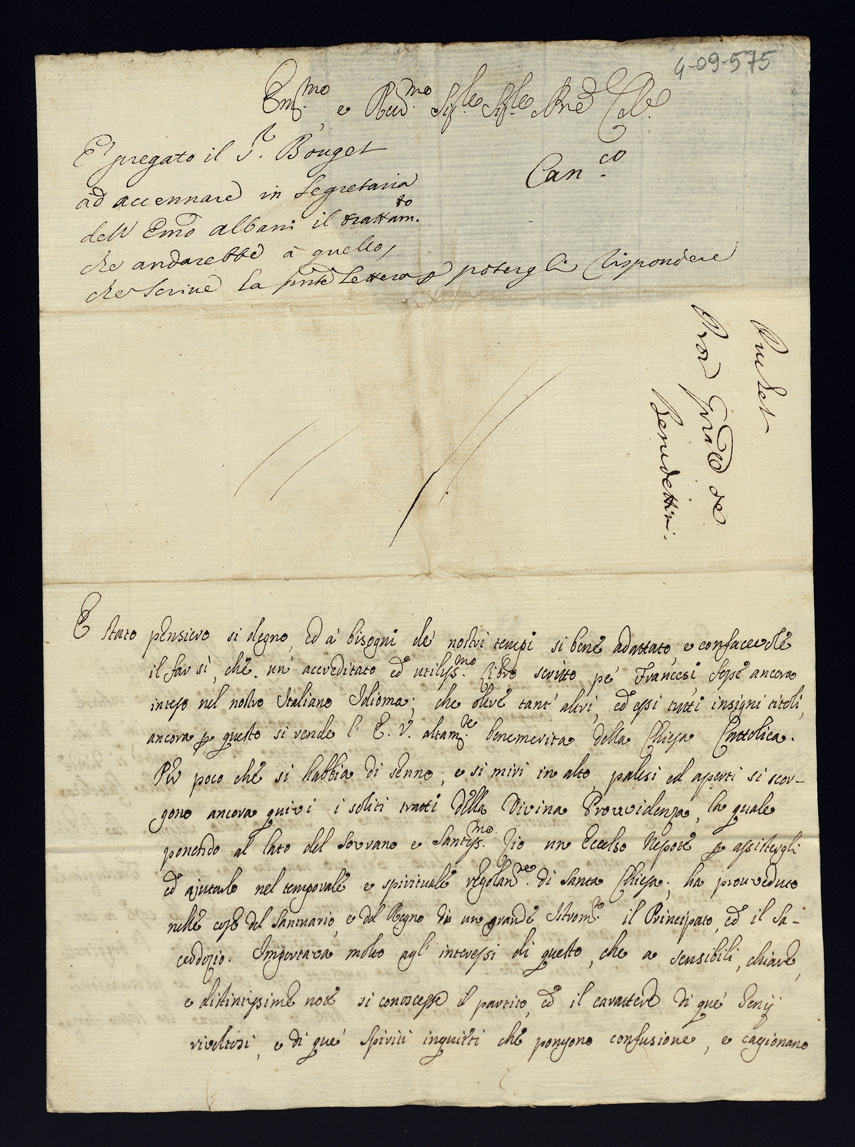 4-09-575
Em.mo e Rev.mo Sig.re Sig.re Pnē Col.mo
E' pregato il Sr. Bouget
ad accennare in Segretaria
dell' Emo Albani il trattam.to
che andarebbe à quello,
che scrive la pnte lettera p potergli rispondere
Can.co
Pro
Benedettini.
E stato pensiero si degno, ed a' bisogni de' nostri tempi si bene adattato e confacevole
il far sì, che un' accreditato ed utiliss.mo libro scritto pe' Francesi fosse ancora
inteso nel nostro Italiano Idioma; che oltre tant' altri, ed essi tutti insigni titoli,
ancora p questo si rende l' E. V. altam.te benemerita della Chiesa Cattolica.
Per poco che si habbia di senno, e si miri in alto palesi ed aperti si scor-
gono ancora quivi i soliti tratti della Divina Provvidenza, la quale
ponendo al lato del Sovrano e Santiss.mo Zio un Eccelso Nepote p assistergli
ed ajutarlo nel temporale e spirituale regolam.to di Santa Chiesa; ha provveduto
nelle cose del Santuario, e del Regno di un grande Strom.to il Principato, ed il Sa-
cerdozio. Importava molto agl' interessi di questo, che a sensibili, chiare,
e distintissime note si conoscesse il partito, ed il carattere di que' Genij
rivoltosi, e di que' Spiriti inquieti che pongono confusione, e cagionano